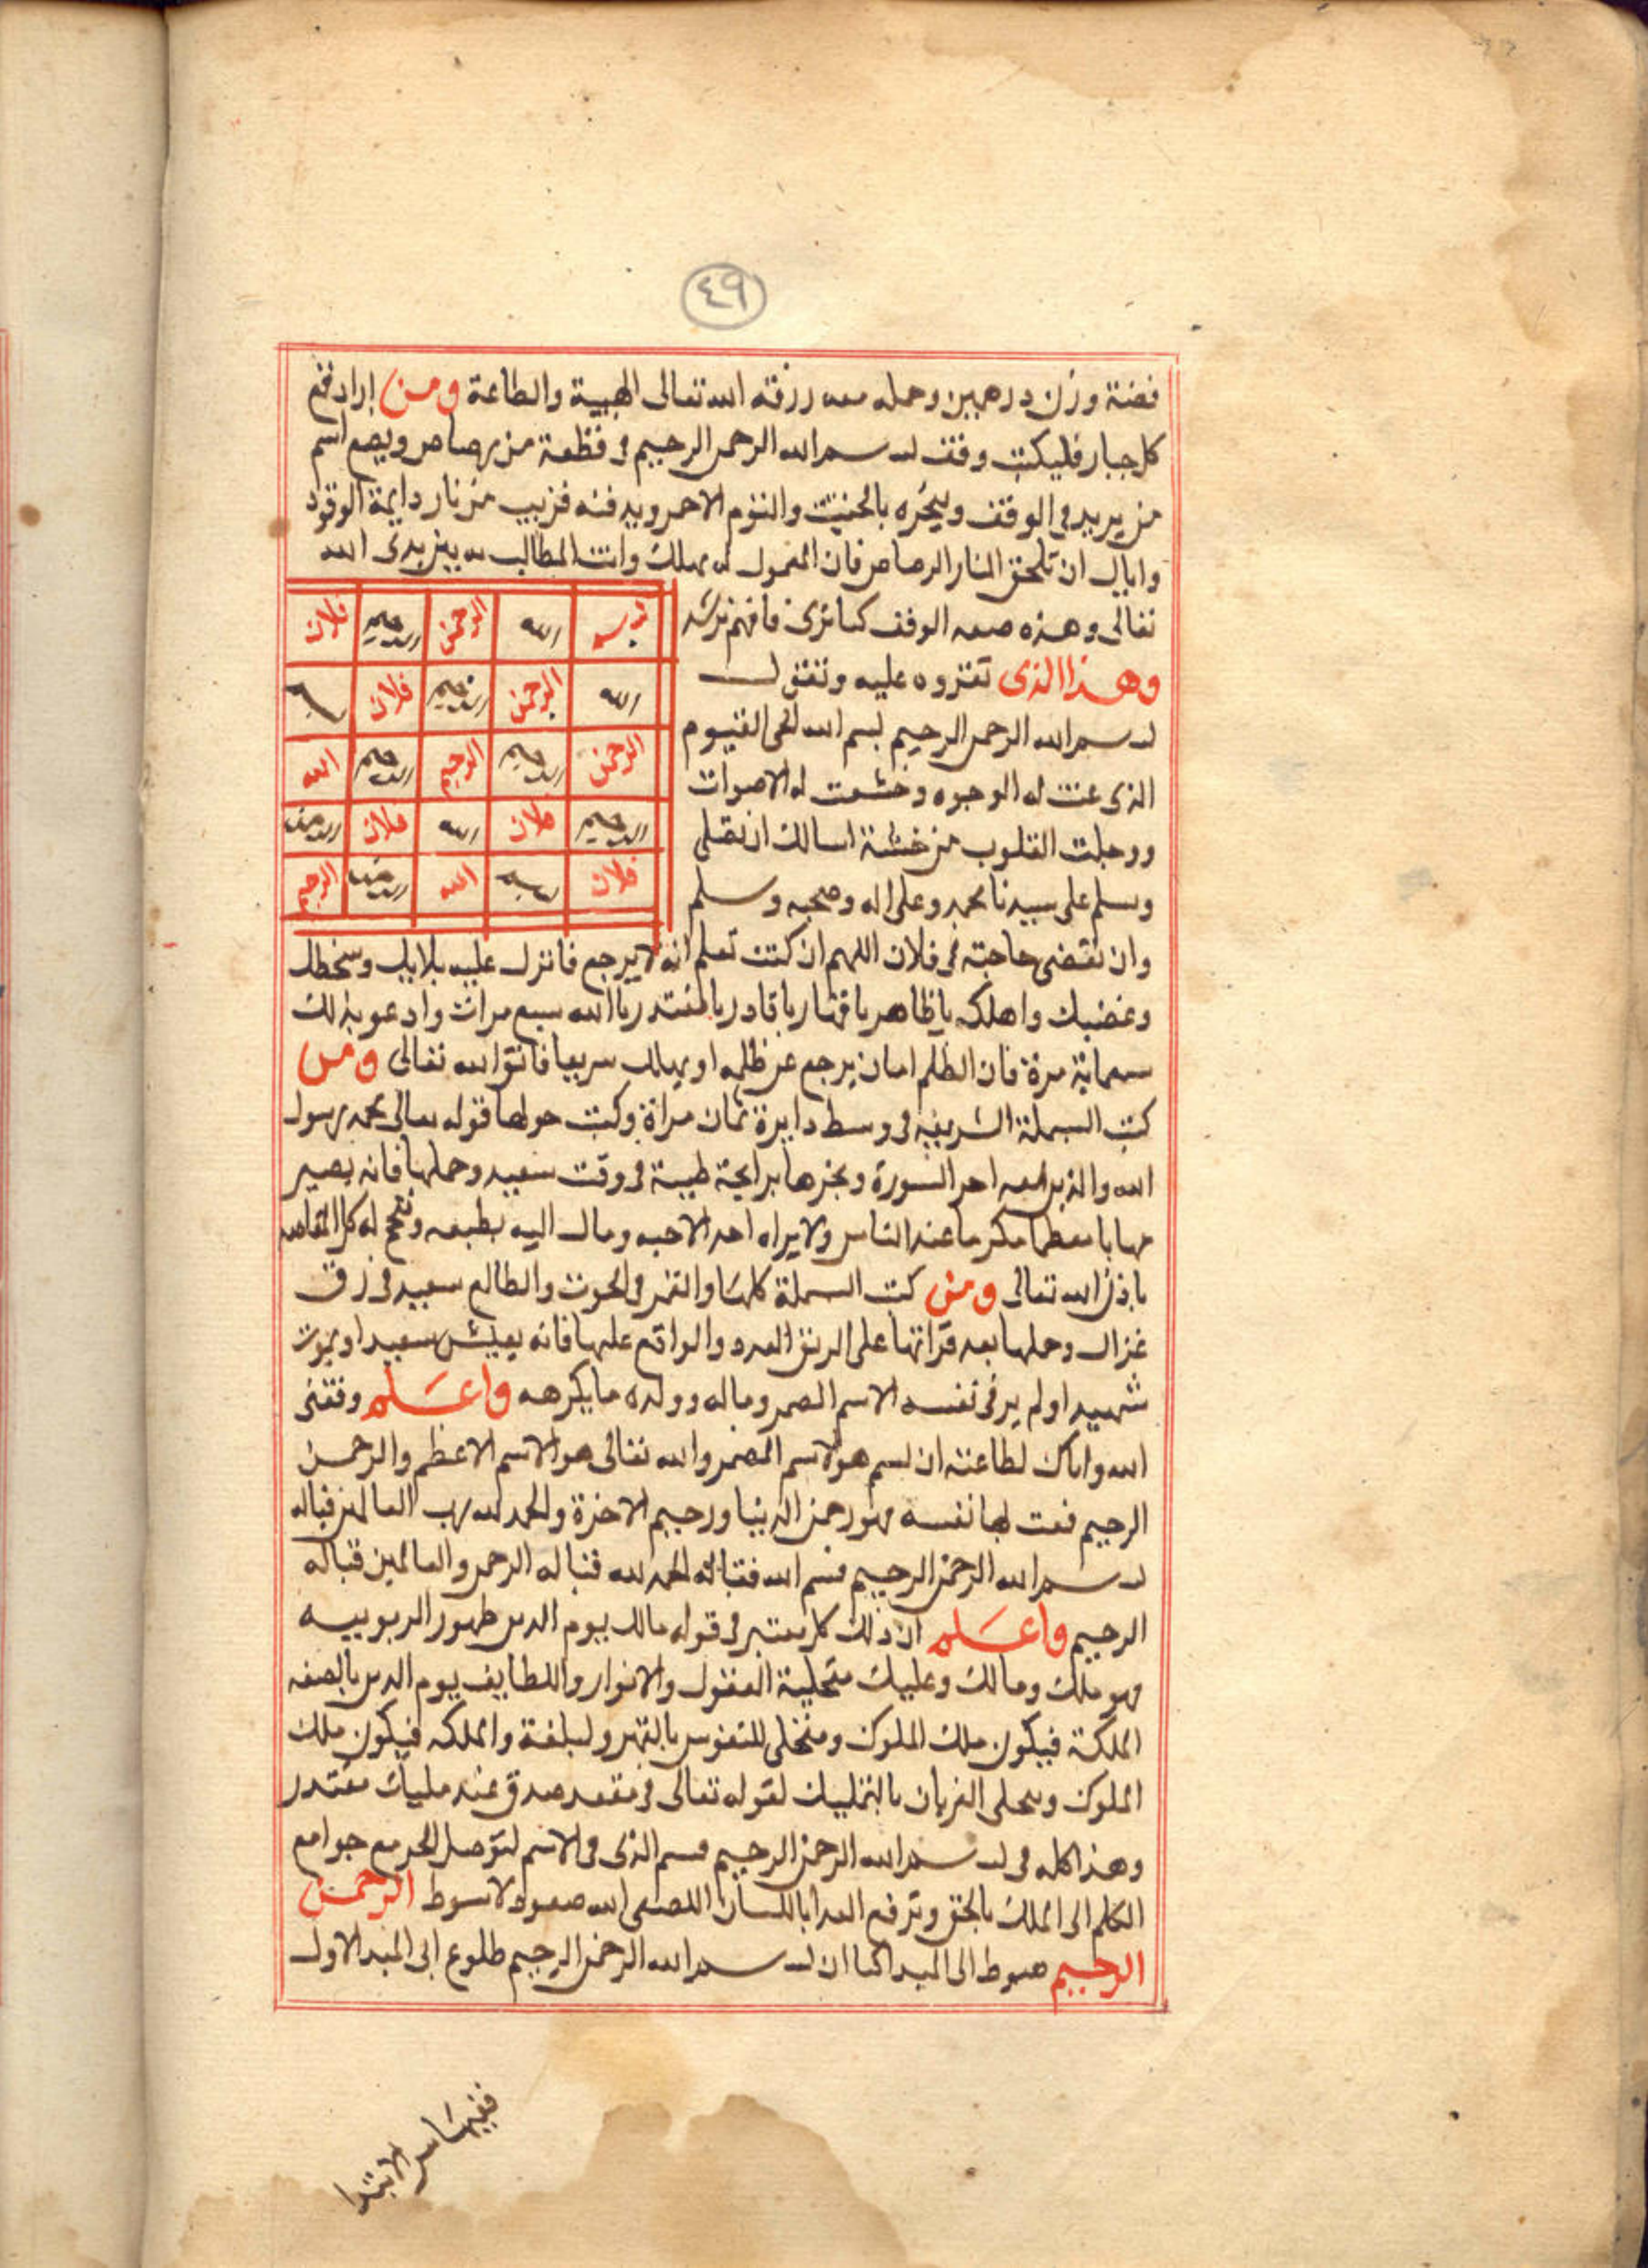 ٤٩
فضة وزن درهمين وحمله معه رزقه الله تعالى الهيبة والطاعة ومن اراد قمع
كل جبار فليكتب وفق بسم الله الرحمن الرحيم فى قطعة من رصاص ويضع اسم
من يريد فى الوفق ويبخره بالحنتيت والثوم الاحمر ويدفنه قريب من نار دايمة الوقود
واياك ان تلحق النار الرصاص فان المعمول له يهلك وانت المطالب به بين يدى الله
تعالى وهذه صفة الوفق كما ترى فافهم ترشد
بسم الله الرحمن الرحيم فلان
وهذا الذى تقروه عليه وتقول
الله الرحمن الرحيم فلان
بسم الله الرحمن الرحيم بسم الله الحى القيوم
الرحمن الرحيم الرحيم الرحيم الله
الذى عنت له الوجوه وخشعت له الاصوات
الرحيم فلان الله فلان الرحمن
ووجلت القلوب من خشية اسالك ان تصلى
فلان بسم الله الرحمن الرحيم
وسلم على سيدنا محمد وعلى اله وصحبه وسلم
وان تقضى حاجته فى فلان اللهم ان كنت تعلم انه لا يرجع فانزل عليه بلايك وسخطك
وغضبك واهلكه يا ظاهر يا قهار يا قادر يا مقتدر يا الله سبع مرات وادعو بذلك
سبعماية مرة فان الظلم اما ان يرجع عن ظلمه او يهلك سريعا فاتق الله تعالى ومن
كتب البسملة الشريفة فى وسط دايرة ثمان مراة وكتب حولها قوله تعالى محمد رسول
الله والذين معه اخر السورة وبخرها برايحة طيبة فى وقت سعيد وحملها فانه يصير
مهابا معظما مكرما عند الناس ولا يراه احد الا حبه ومال اليه بطبعه وفتح له كل المقاصد
باذن الله تعالى ومن كتب البسملة كلها والقمر فى الحوت والطالع سعيد فى رق
غزال وحملها بعد قراتها على الريق العدد والواقع عليها فانه يعيش سعيدا ويموت
شهيدا ولم ير فى نفسه الاسم المضمر وماله وولده ما يكرهه واعلم وفقنى
الله واياك لطاعته ان بسم هو الاسم المضمر والله تعالى هو الاسم الاعظم والرحمن
الرحيم نعت لها نفسه فهو رحمن الدنيا ورحيم الاخرة والحمد لله رب العالمين قباله
بسم الله الرحمن الرحيم فبسم الله قبالة الحمد لله قباله الرحمن والعالمين قباله
الرحيم واعلم ان ذلك كل معتبر فى قوله مالك يوم الدين ظهور الربوبيه
فهو ملك ومالك وعليك متجلية العقول والانوار واللطايف يوم الدين بالصفه
الملكة فيكون ملك الملوك ومتجلى للنفوس بالقهر ولبلغة والملكه فيكون ملك
الملوك وتجلى القربان بالتمليك لقوله تعالى فى مقعد صدق عند مليك مقتدر
وهذا كله فى بسم الله الرحمن الرحيم فبسم الذى فى الاسم لتوصل الحد مع جوامع
الكلم الى الملك بالحق وترفع الله صعود لا سوط الرحمن
الرحيم هبوط الى المبدا كما ان بسم الله الرحمن الرحيم طلوع الى المبدا الاول
ففيها سر الابتدا